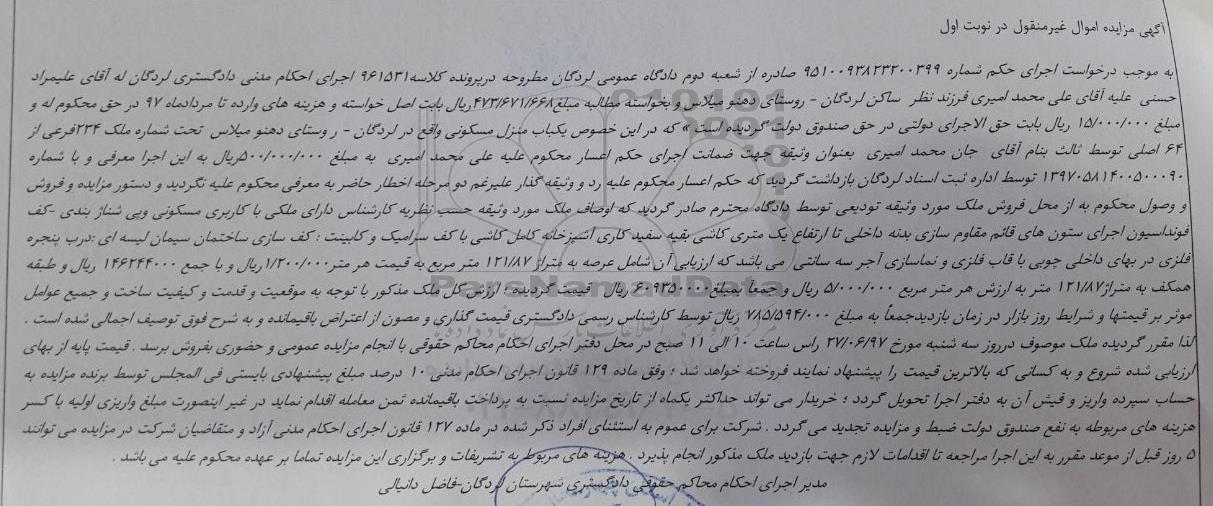 آگهی مزایده اموال غیرمنقول در نوبت اول
به موجب درخواست اجرای حکم شماره ۹۵۱۰۰۹۳۸۲۳۲۰۰۳۹۹ صادره از شعبه دوم دادگاه عمومی لردگان مطروحه درپرونده کلاسه۹۶۱۵۳۱ اجرای احکام مدنی دادگستری لردگان له آقای علیمراد
حسنی علیه آقای علی محمد امیری فرزند نظر ساکن لردگان - روستای دهنو میلاس و بخواسته مطالبه مبلغ۴۷۳/۶۷۱/۶۶۸ریال بابت اصل خواسته و هزینه های وارده تا مردادماه ۹۷ در حق محکوم له و
مبلغ ۱۵/۰۰۰/۰۰۰ ریال بابت حق الاجرای دولتی در حق صندوق دولت گردیده است » که در این خصوص یکباب منزل مسکونی واقع در لردگان - ر وستای دهنو میلاس تحت شماره ملک ۲۳۴فرعی از
۶۴ اصلی توسط ثالث بنام آقای جان محمد امیری بعنوان وثیقه جهت ضمانت اجرای حکم اعسار محکوم علیه علی محمد امیری به مبلغ ۵۰۰/۰۰۰/۰۰۰ریال به این اجرا معرفی و با شماره
۱۳۹۷۰۵۸۱۴۰۰۵۰۰۰۹۰ توسط اداره ثبت اسناد لردگان بازداشت گردید که حکم اعسار محکوم علیه رد و وثیقه گذار علیرغم دو مرحله اخطار حاضر به معرفی محکوم علیه نگردید و دستور مزایده و فروش
و وصول محکوم به از محل فروش ملک مورد وثیقه تودیعی توسط دادگاه محترم صادر گردید که اوصاف ملک مورد وثیقه حسب نظریه کارشناس دارای ملکی با کاربری مسکونی وپی شناژ بندی -کف
فونداسیون اجرای ستون های قائم مقاوم سازی بدنه داخلی تا ارتفاع یک متری کاشی بقیه سفید کاری آشپزخانه کامل کاشی با کف سرامیک و کابینت : کف سازی ساختمان سیمان لیسه ای :درب پنجره
فلزی در بهای داخلی چوبی با قاب فلزی و نماسازی آجر سه سانتی می باشد که ارزیابی آن شامل عرصه به متراژ ۱۲۱/۸۷ متر مربع به قیمت هر متر۱/۲۰۰/۰۰۰ریال و با جمع ۱۴۶۲۴۴۰۰۰ ریال و طبقه
همکف به متراژ۱۲۱/۸۷ متر به ارزش هر متر مربع ۵/۰۰۰/۰۰۰ ریال و جمعاً بمبلغ۶۰۹۳۵۰۰۰۰ ریال قیمت گردیده ؛ ارزش کل ملک مذکور با توجه به موقعیت و قدمت و کیفیت ساخت و جمیع عوامل
موثر بر قیمتها و شرایط روز بازار در زمان بازدیدجمعاً به مبلغ ۷۸۵/۵۹۴/۰۰۰ ریال توسط کارشناس رسمی دادگستری قیمت گذاری و مصون از اعتراض باقیمانده و به شرح فوق توصیف اجمالی شده است .
لذا مقرر گردیده ملک موصوف درروز سه شنبه مورخ ۲۷/۰۶/۹۷ راس ساعت ۱۰ الی ۱۱ صبح در محل دفتر اجرای احکام محاکم حقوقی با انجام مزایده عمومی و حضوری بفروش برسد . قیمت پایه از بهای
ارزیابی شده شروع و به کسانی که بالاترین قیمت را پیشنهاد نمایند فروخته خواهد شد ؛ وفق ماده ۱۲۹ قانون اجرای احکام مدنی ۱۰ درصد مبلغ پیشنهادی بایستی فی المجلس توسط برنده مزایده به
حساب سپرده واریز و فیش آن به دفتر اجرا تحویل گردد ؛ خریدار می تواند حداکثر یکماه از تاریخ مزایده نسبت به پرداخت باقیمانده ثمن معامله اقدام نماید در غیر اینصورت مبلغ واریزی اولیه با کسر
هزینه های مربوطه به نفع صندوق دولت ضبط و مزایده تجدید می گردد . شرکت برای عموم به استثنای افراد ذکر شده در ماده ۱۲۷ قانون اجرای احکام مدنی آزاد و متقاضیان شرکت در مزایده می توانند
۵ روز قبل از موعد مقرر به این اجرا مراجعه تا اقدامات لازم جهت بازدید ملک مذکور انجام پذیرد . هزینه های مربوط به تشریفات و برگزاری این مزایده تماما بر عهده محکوم علیه می باشد .
مدیر اجرای احکام محاکم حقوقی دادگستری شهرستان لردگان-فاضل دانیالی
ParsNamadData